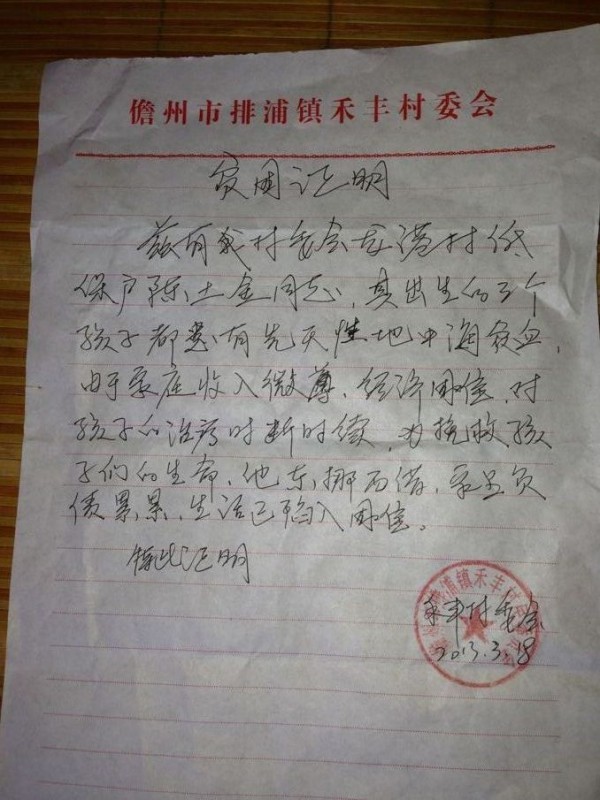 儋州市排浦镇禾丰村委会
贫困证明
兹有我村委会龙滢村低
保户陈土金同志，其出生的3个
孩子都患有先天性地中海贫血，
由于家庭收入微薄、经济困难，对
孩子的治疗时断时续，为挽救孩
子们的生命，他东挪西借，家里负
债累累，生活已陷入困难。
特此证明
禾丰村委会
2013.3.18